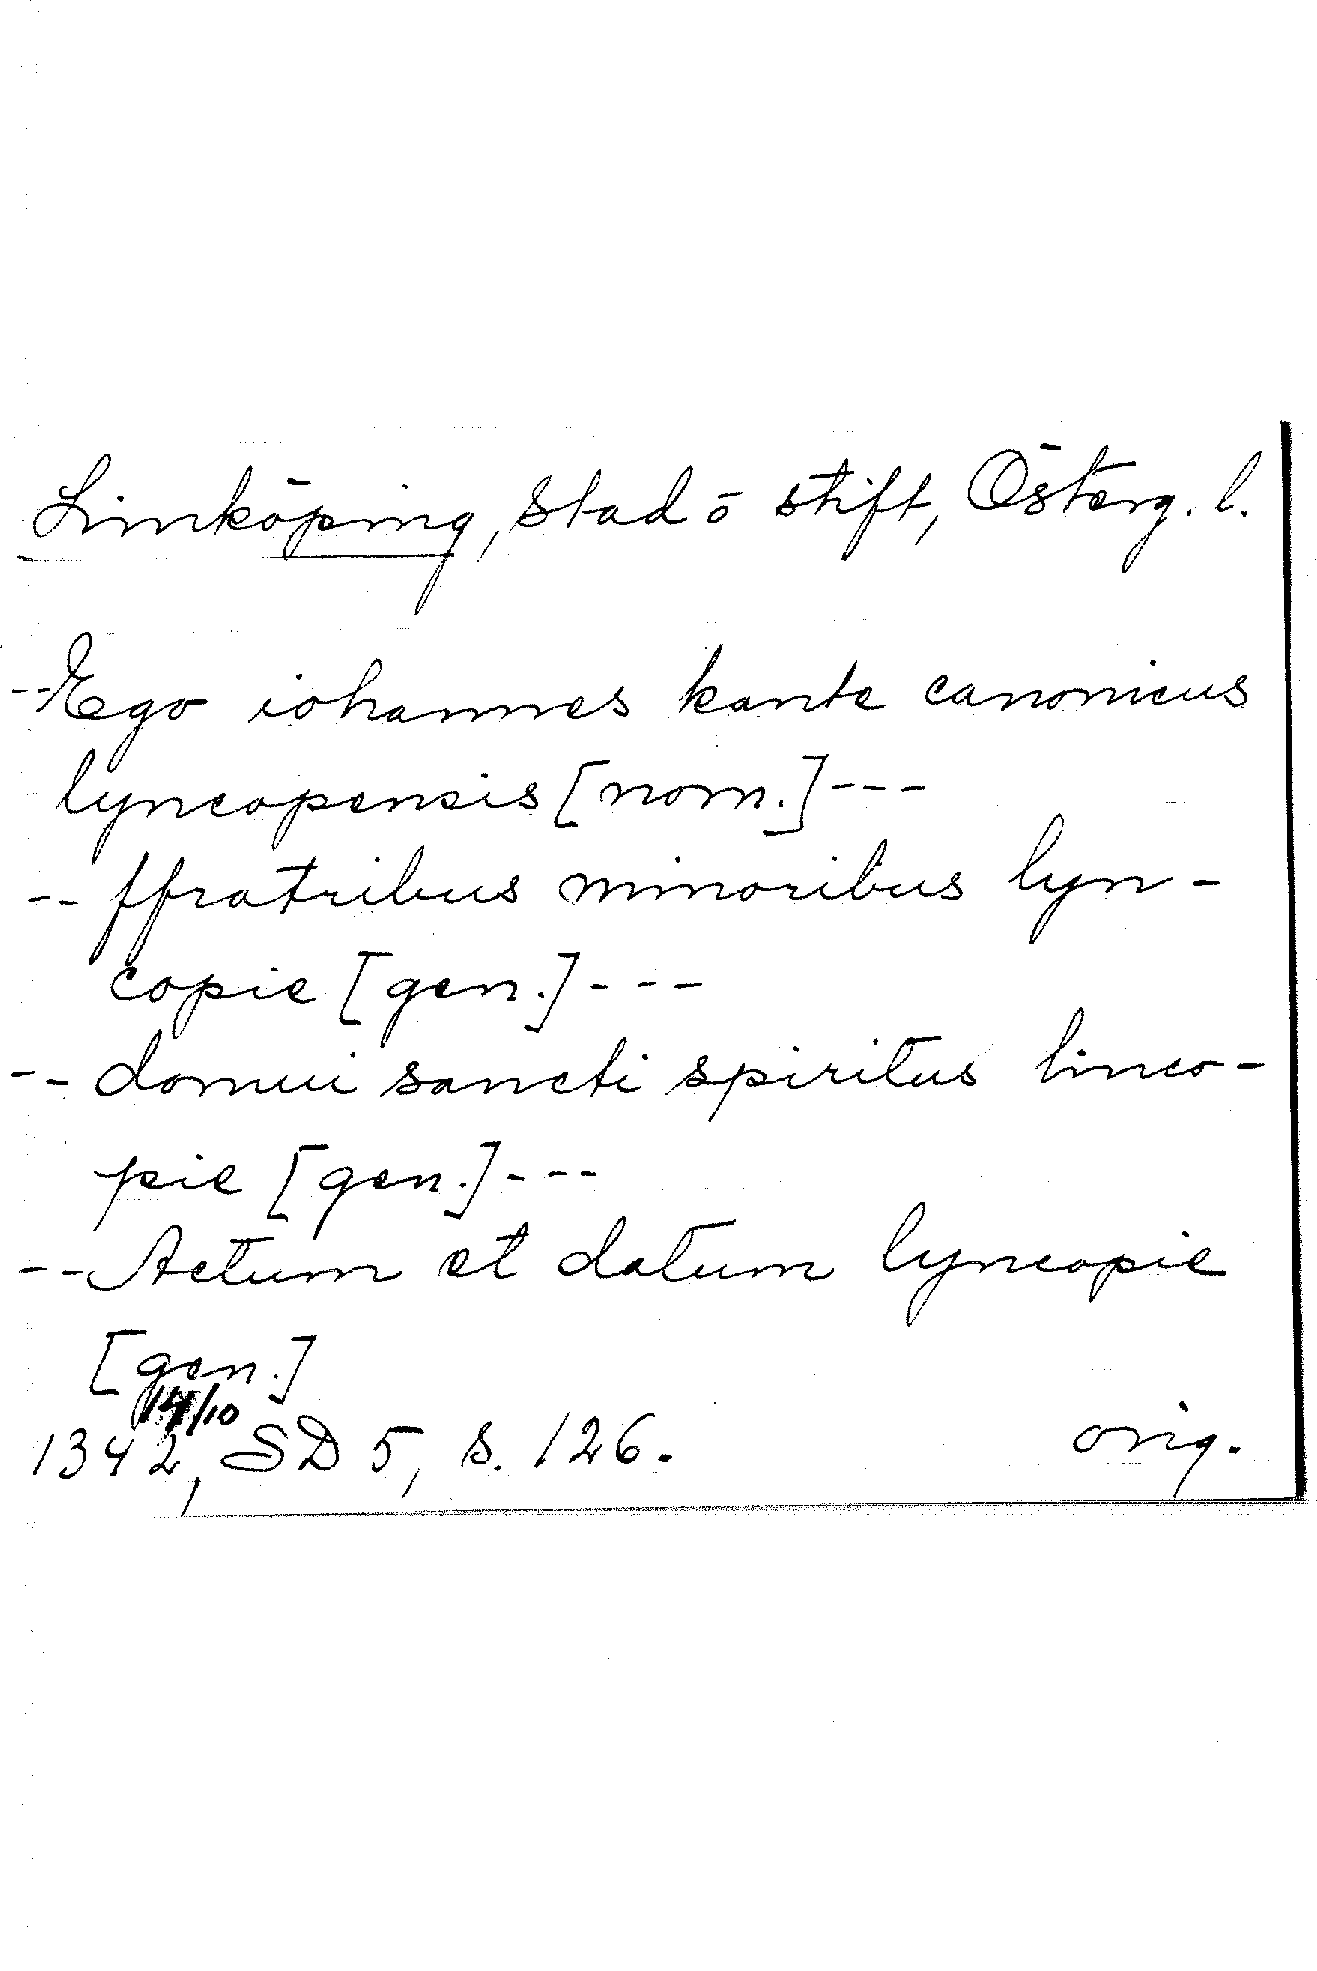 Linköping, Stad o stift, Österg. l.
--Ego iohannes kante canonicus
lyncopensis [nom.]---
-- ffratribus minoribus lyn-
copie [gen.]---
-- domui sancti spiritus linco-
pie [gen.]---
--Actum et datum lyncopie
[gen.]
14/10
1342, SD 5, s. 126. orig.